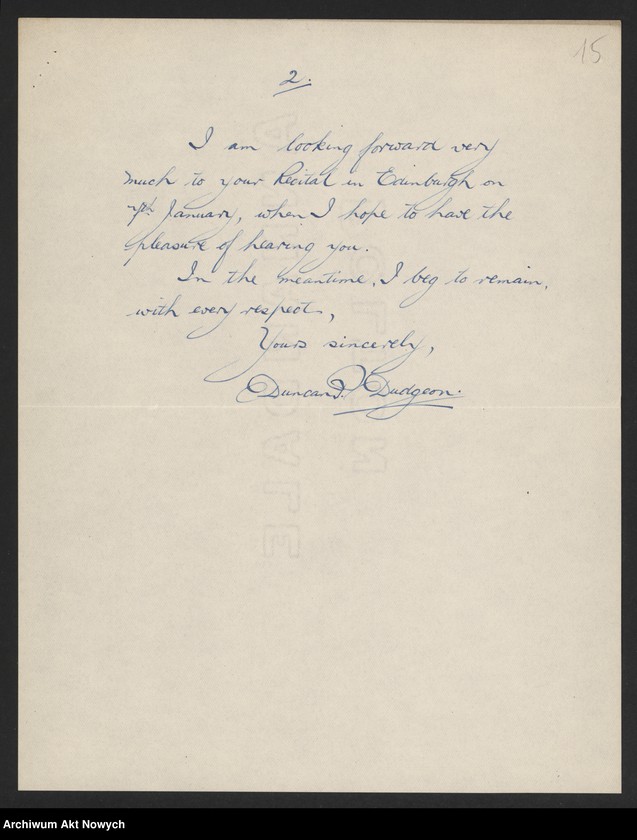 15
2.
I am looking forward very
much to your Recital in Edinburgh on
7th January, when I hope to have the
pleasure of hearing you.
In the meantime, I beg to remain,
with every respect,
Yours sincerely,
Duncan Dudgeon.
Archiwum Akt Nowych